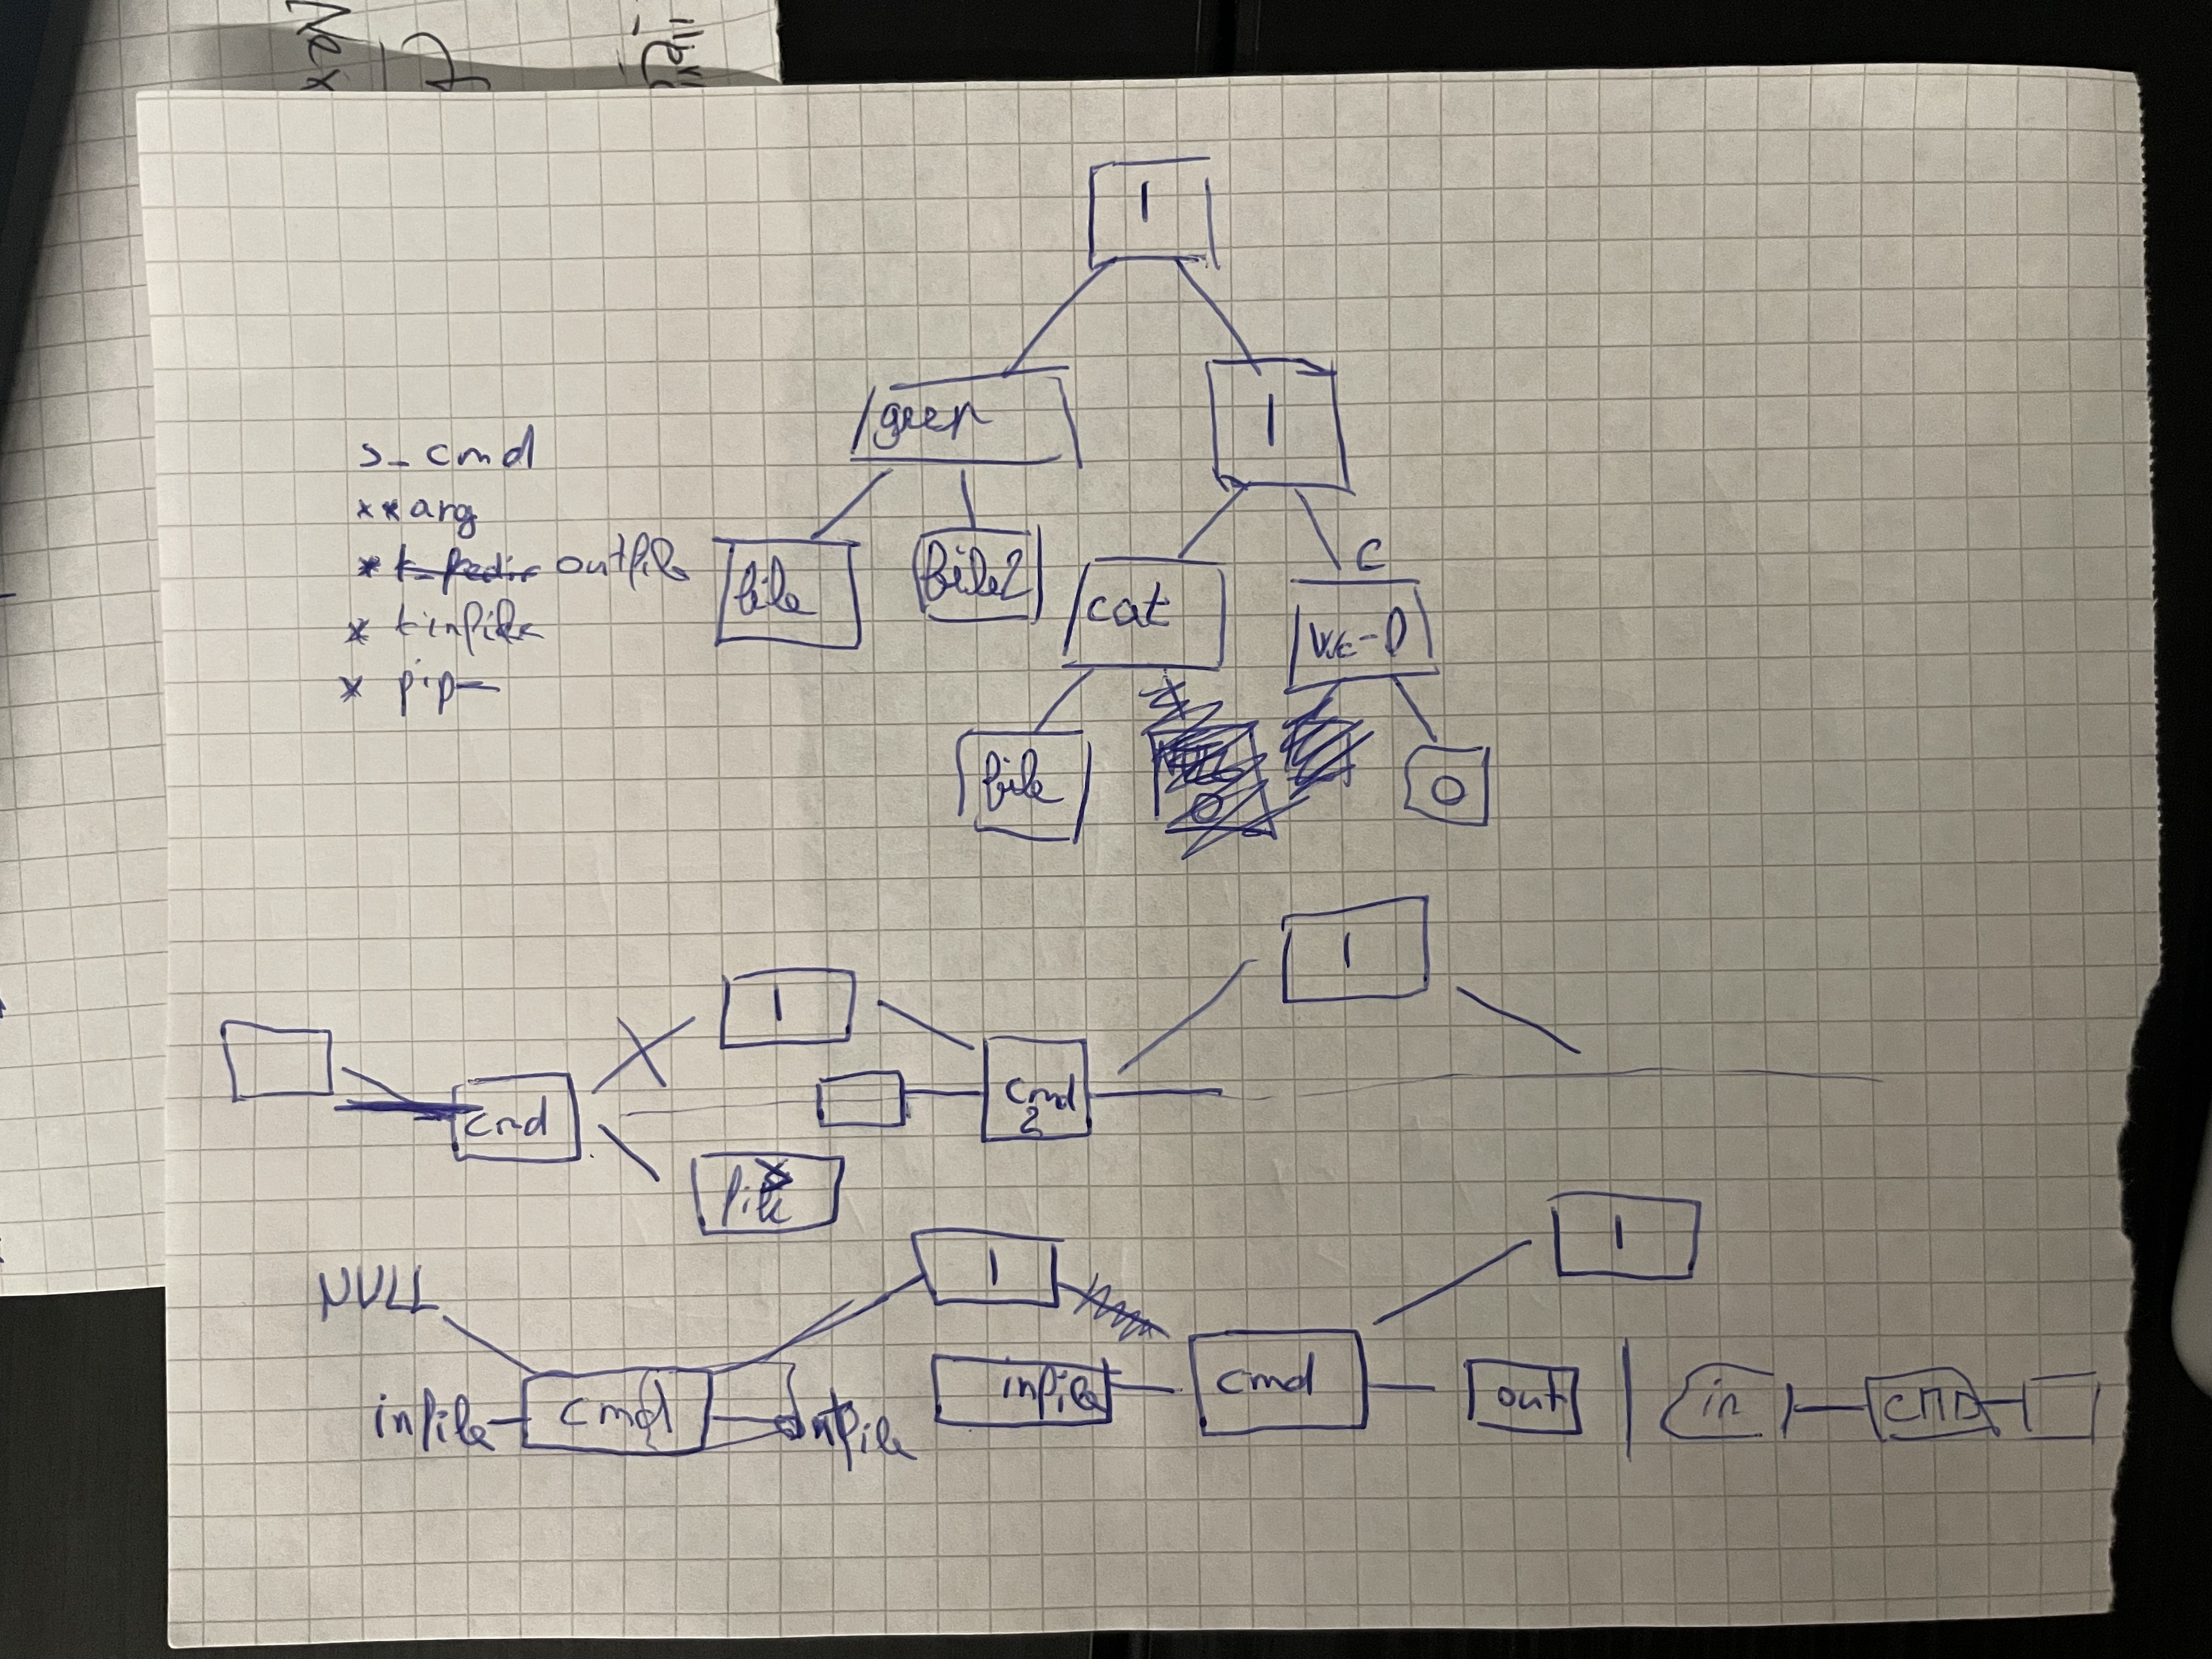 |
|
s_ cmd
** arg
* outfile
* t infile
* pip
file
file2
cat
C
file
O
|
|
cmd
cmd
2
file
|
|
NULL
infile
cmd
outfile
infile
cmd
out
|
in
CMD